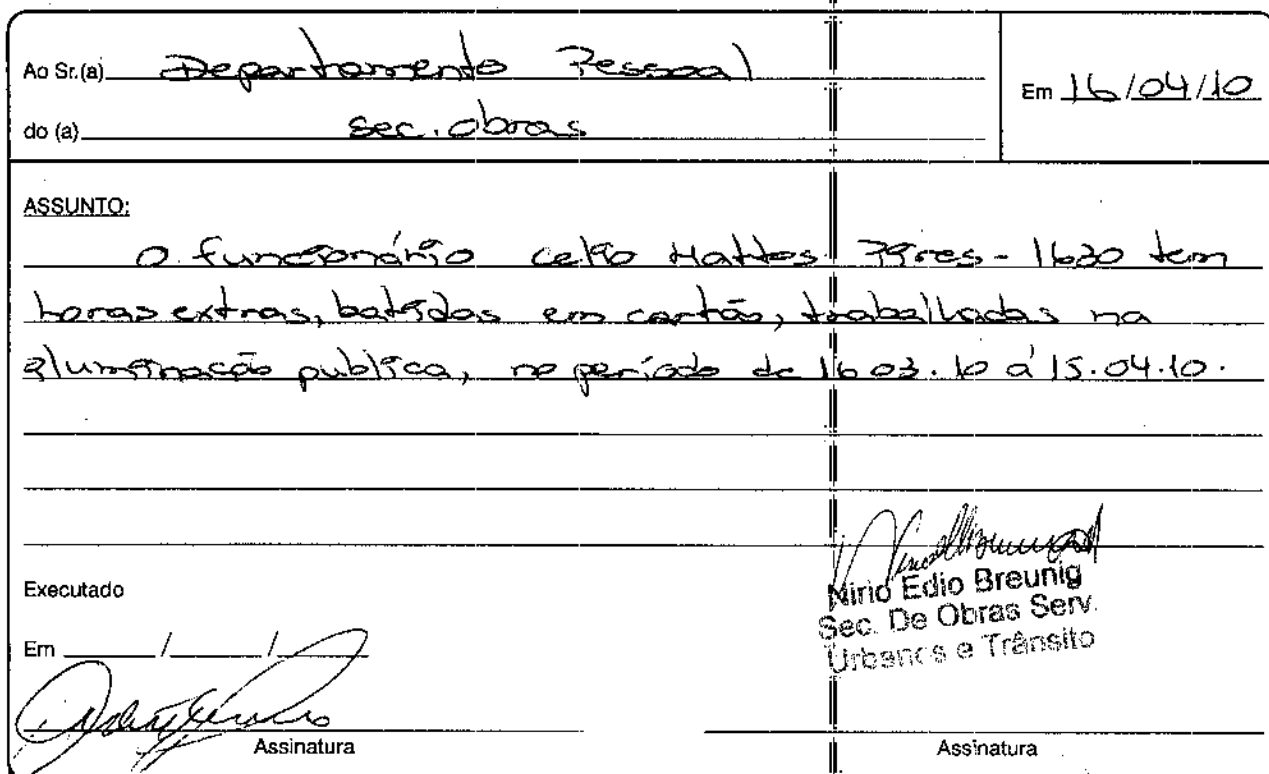 Ao Sr.(a) Departamento Pessoal
do (a) Sec. Obras
Em 16/04/10
ASSUNTO:
O funcionário Celio Mattos Pires - 1620 tem
horas extras, batidas em cartão, trabalhadas na
iluminação publica, no período de 16 03.10 á 15.04.10.
Executado
Em / /
Assinatura
Nirio Edio Breunig
Sec. De Obras Serv.
Urbanos e Trânsito
Assinatura